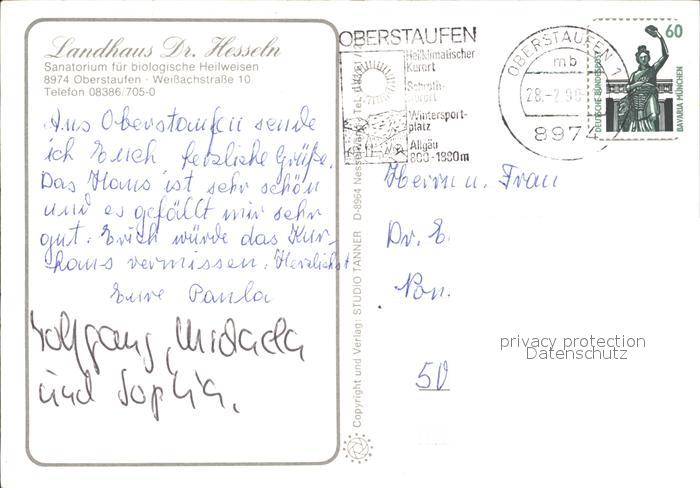 Landhaus Dr. Hesseln
Sanatorium für biologische Heilweisen
8974 Oberstaufen · Weißachstraße 10
Telefon 08386/705-0
Aus Oberstaufen sende
ich Euch herzliche Grüße.
Das Haus ist sehr schön
und es gefällt mir sehr
gut. Euch würde das Kur-
haus vermissen. Herzlichst
Eure Paula
Wolfgang, Michaela
und Sophia.
Copyright und Verlag: STUDIO TANNER D-8964 Nesselwang Tel.
OBERSTAUFEN
Heilklimatischer
Kurort
Schroth-
kurort
Wintersport-
platz
Allgäu
800-1880m
OBERSTAUFEN 1
mb
28.-2.90
8974
60
DEUTSCHE BUNDESPOST
BAVARIA MÜNCHEN
Herrn u. Frau
Dr. E.
50
privacy protection
Datenschutz